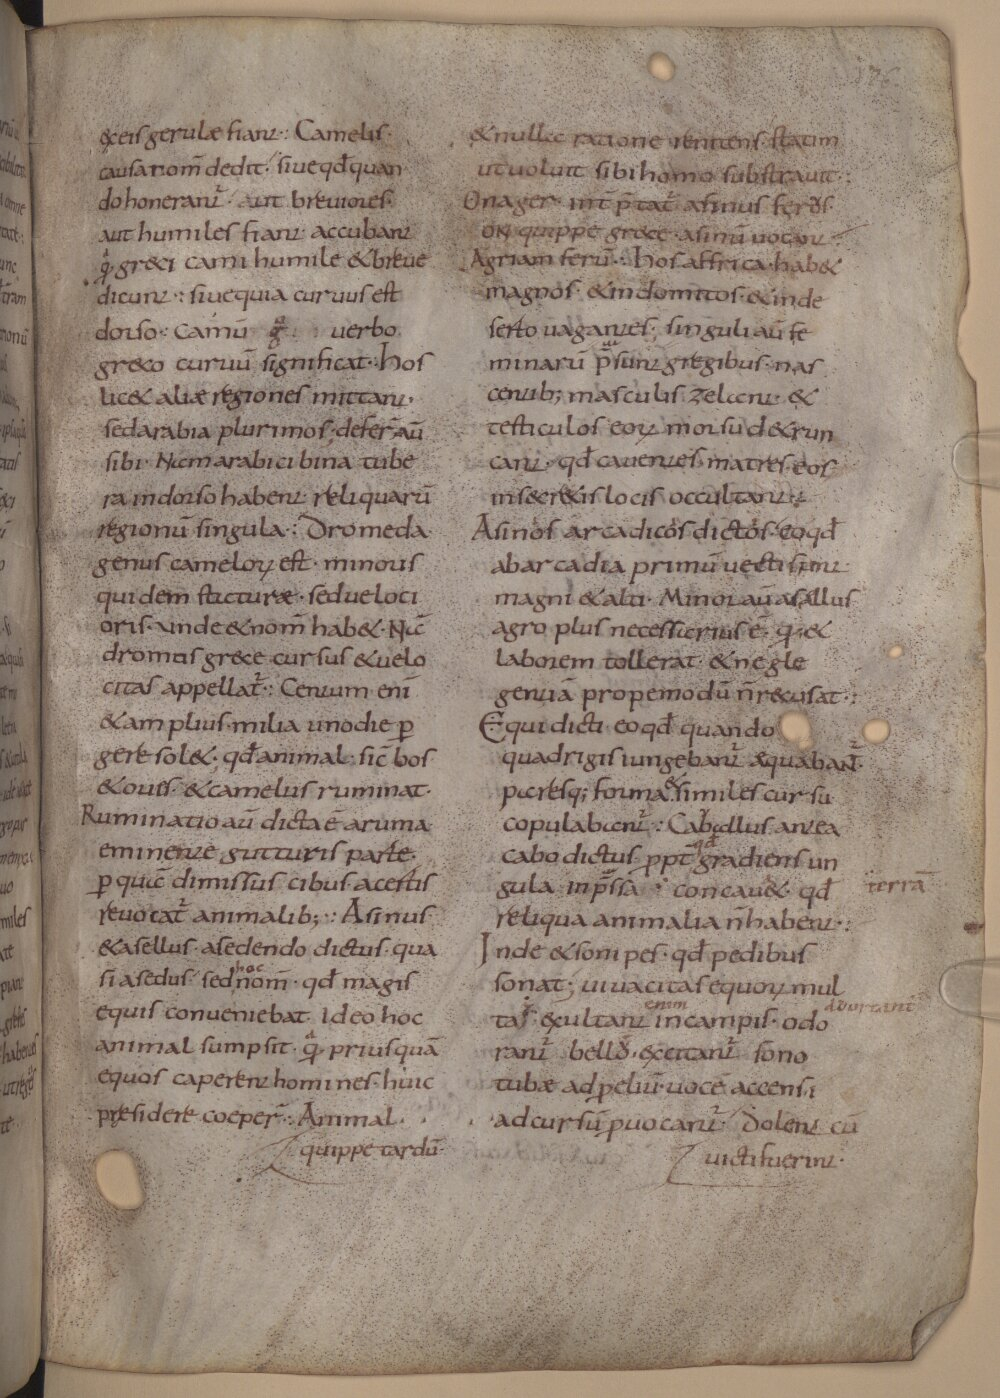 176
& eis gerulæ fiant·: Camelis·
causa nom̄ dedit· siue qđ quan
do honerant᷑· aut breuiores·
aut humiles fiant accubant
q̇ greci cami humile & breue
dicunt·: siue quia curuus est
dorso· Camū verbo
greco curuū significat· Hos
lic& aliæ regiones mittant·
sed arabia plurimos· defer aū
sibi· Nam arabici bina tube
ra in dorso habent reliquarū
regionū singula·: Dromeda
genus cameloꝝ est· minoris
quidem staturæ· sed ueloci
oris· unde & nom̄ hab&· Nā
dromos grece cursus & uelo
citas appellat᷑·: Centum enī
& amplius milia uno die ꝑ
gere sol&· qđ animal· sic̄ bos
& ouis· & camelus ruminat·
Ruminatio aū dicta ē aruma
eminente gutturis parte·
ꝑ quā dimissus cibus a certis
reuocat᷑ animalib;·: Asinus
& asellus· a sedendo dictus· qua
si asedus· sed hoc nom̄· qđ magis
equis conueniebat· Ideo hoc
animal sumpsit q̇ priusquā
equos caperent homines· huic
presidere coeper·: Animal·
quippe tardū·
& nulla ratione renitens· statim
ut uoluit sibi homo substrauit·:
Onager· int̄ p̄tat᷑ asinus ferus·
on quippe grece· asinū uocant·
Agriam ferū·: Hos affrica hab&
magnos· & indomitos· & in de
serto uagantes· singuli aū fe
minarū p̄sunt gregibus· nas
centib; masculis zelant· &
testiculos eoꝝ morsu d&run
cant· qđ cauentes matres eos
in secr&is locis occultant·:
Asinos arcadicos dictos· eo qđ
ab arcadia primū uecti sunt
magni & alti· Minor aū asallus
agro plus necessarius ē· q· &
laborem tollerat· & negle
gentiā propemodū n̄ recusat·:
Equi dicti· eo qđ quando
quadrigis iungebant᷑ æquabant᷑·
paresq; forma & similes cursu
copulabant᷑·: Caballus antea
cabo dictus· ꝓpt̄ qđ gradiens un
gula inp̄ssa terrā concau&· qđ
reliqua animalia n̄ habent·:
Inde & sonipes· qđ pedibus
sonat· uiuacitas equoꝝ mul
ta· exultant enim in campis· odo
rant᷑ bellū· excitant᷑ sono
tubæ ad p̄elium· uoce accensi
ad cursū ꝓuocant᷑· Dolent cū
uicti fuerint·